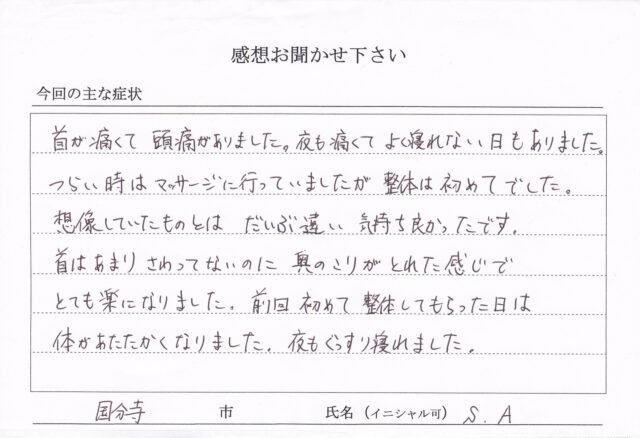 感想お聞かせ下さい
今回の主な症状
首が痛くて 頭痛がありました。夜も痛くて よく寝れない日もありました。
つらい時は マッサージに行っていましたが 整体は初めてでした。
想像していたものとは だいぶ違い 気持ち良かったです。
首はあまり さわってないのに 奥のこりが とれた感じで
とても楽になりました。前回 初めて 整体してもらった日は
体があたたかくなりました。夜もぐっすり寝れました。
国分寺 市 氏名(イニシャル可) S. A